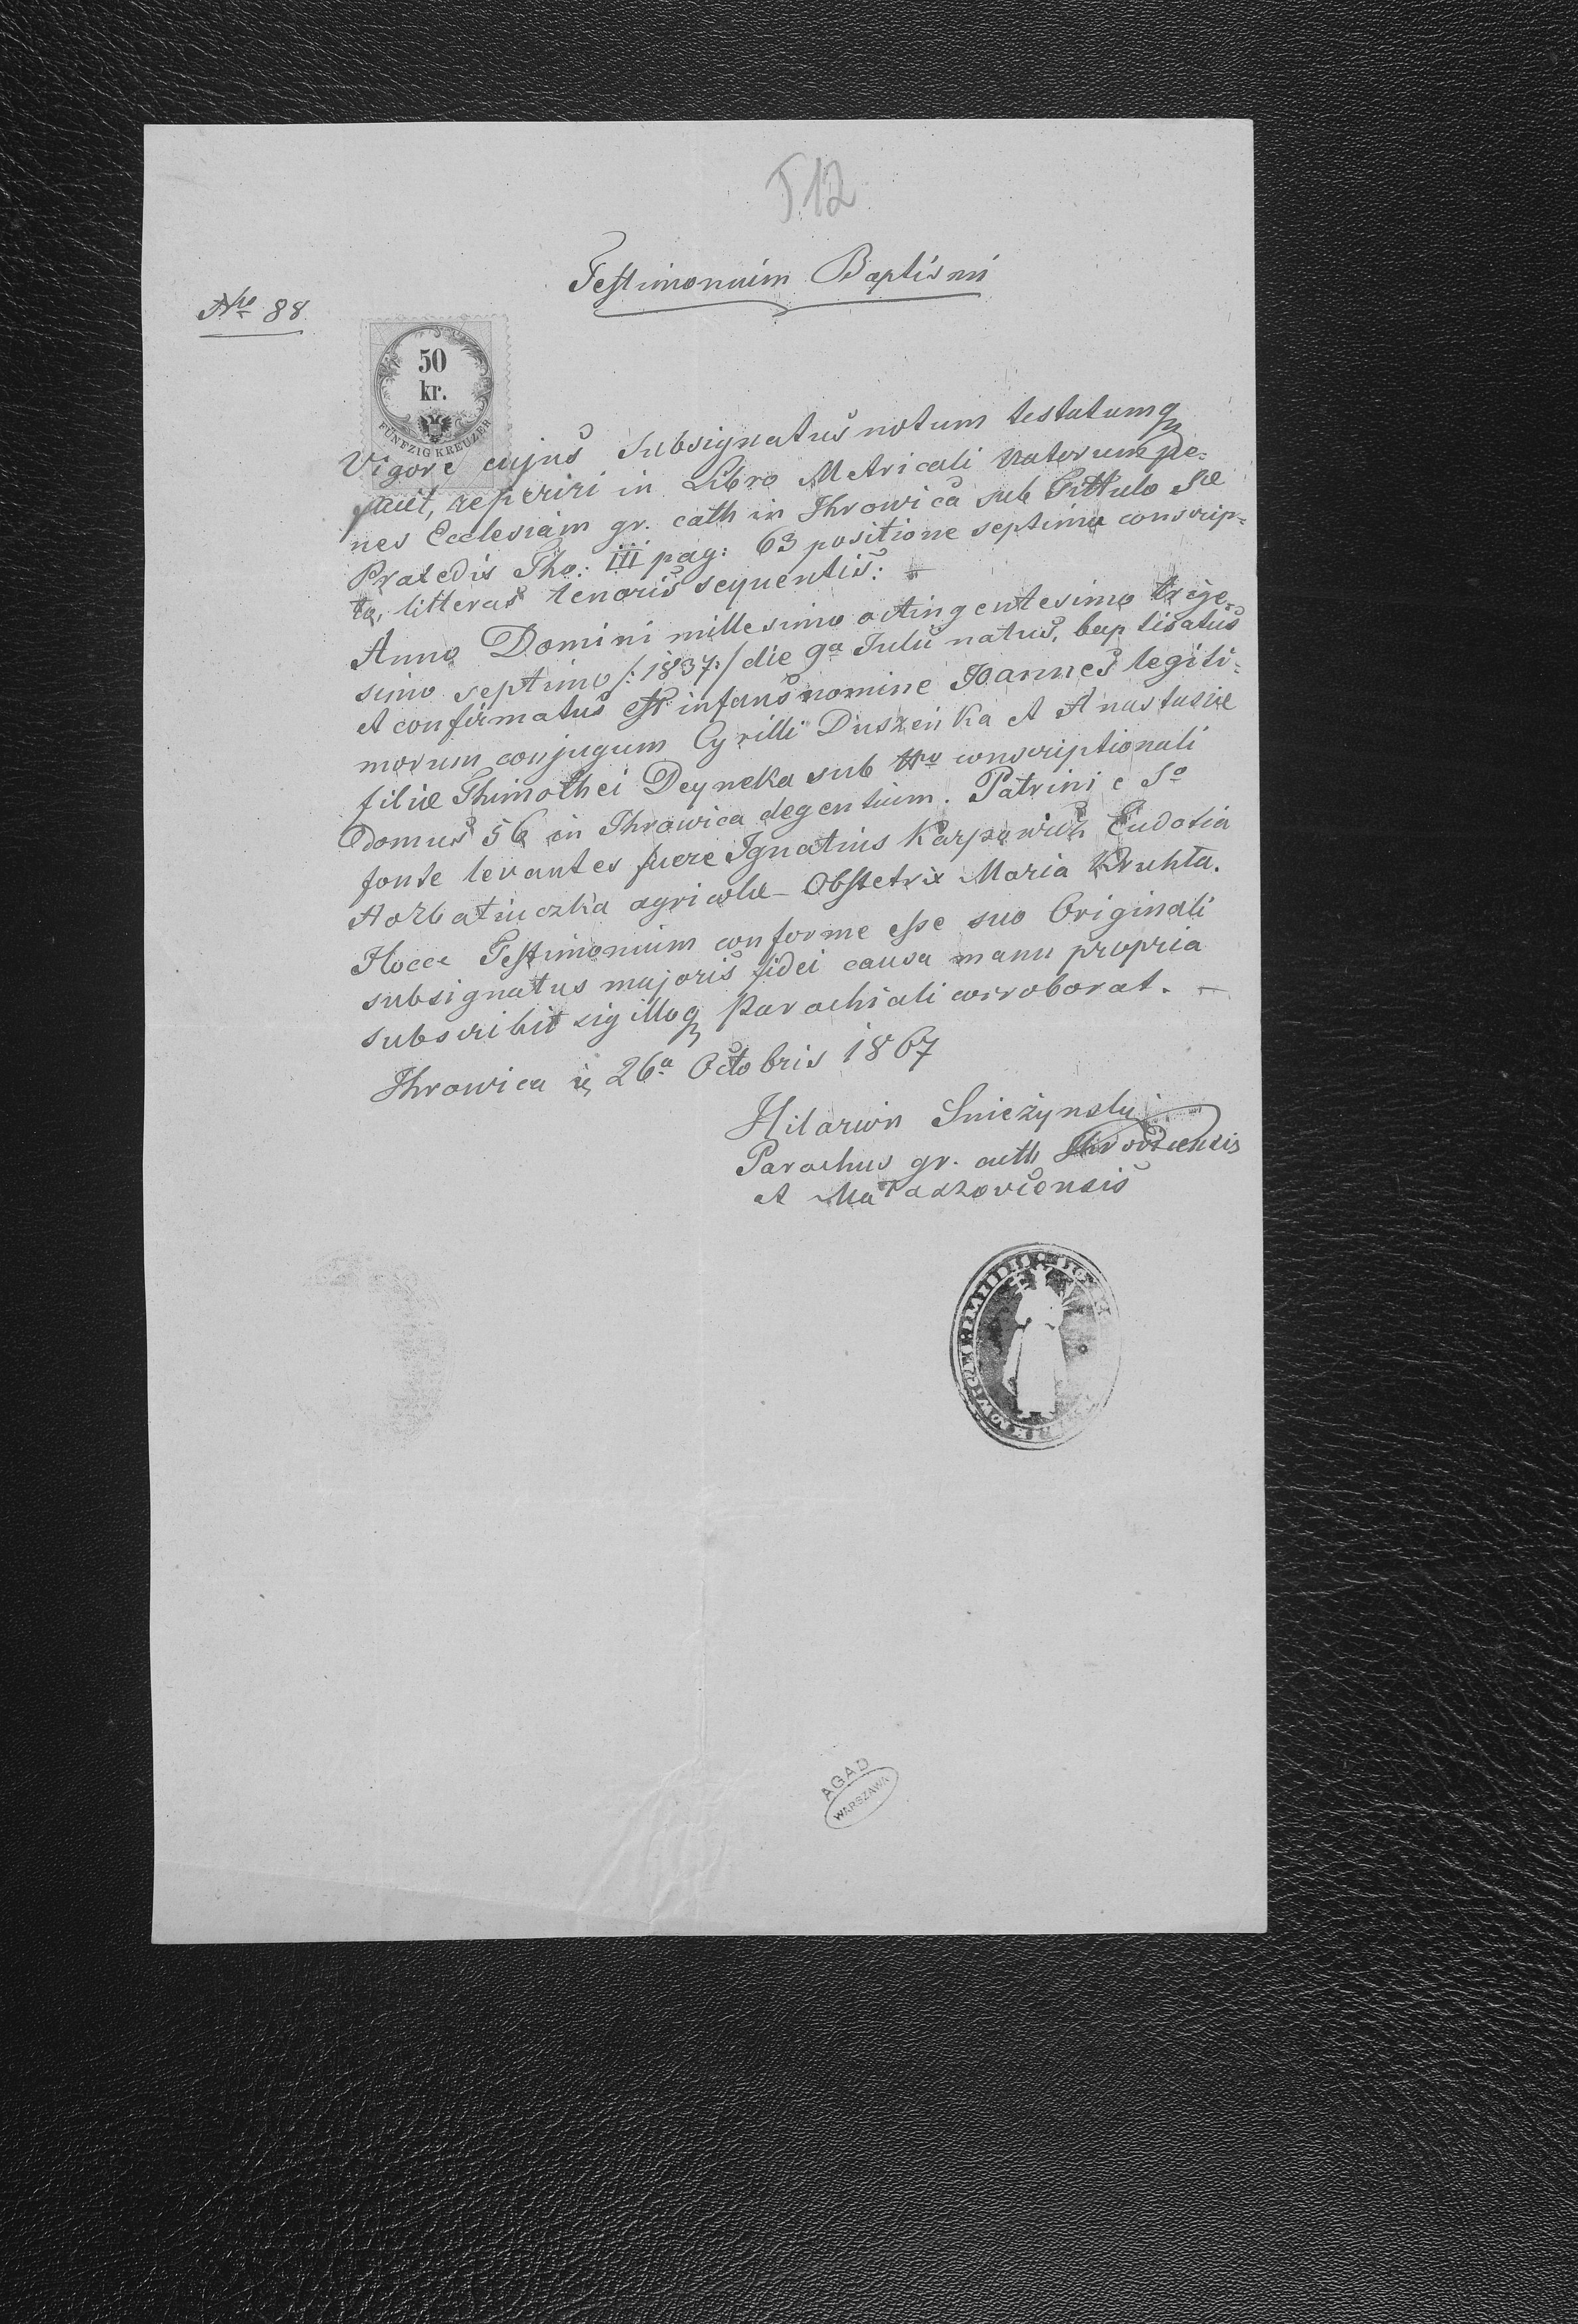 512
Testimonium Baptismi
Nro 88
50
kr.
FÜNFZIG KREUZER
Vigore cujus Subsignatus notum testatumq
facit, reperiri in Libro Metricali Natorum pe-
nes Ecclesiam gr. cath in Ihrowica sub Tittulo Sae
Praxedis Tho: III pag: 63 positione septima conscrip-
ta, litteras tenoris sequentis:
Anno Domini millesimo octingentesimo trige-
simo septimo /:1837:/ die 9a Julii natus, baptisatus
et confirmatus est infans nomine Joannes legiti-
morum conjugum Cyrilli Duszeńka et Anastasiae
filiae Thimothei Deyneka sub Nro conscriptionali
Domus 56 in Ihrowica degentium. Patrini e So
fonte levantes fuere Ignatius Karpowich Eudoxia
Horbatiuczka agricolae Obstetrix Maria Kruhła.
Hocce Testimonium conforme esse suo Originali
subsignatus majoris fidei causa manu propria
subscribit sigilloq Parochiali corroborat.
Ihrowica 26a Octobris 1867
Hilarion Sniezynsky
Parochus gr. cath Ihrovicensis
et
AGAD
WARSZAWA